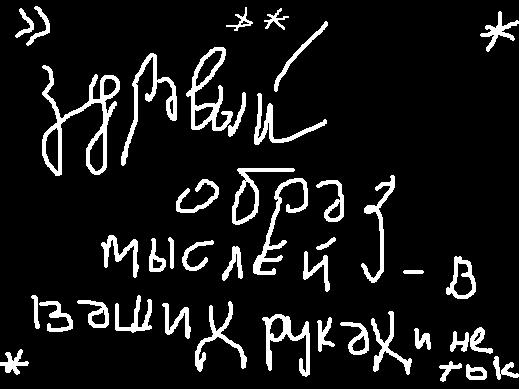 » ** *
здравый
образ
мыслей - в
ваших руках и не
*